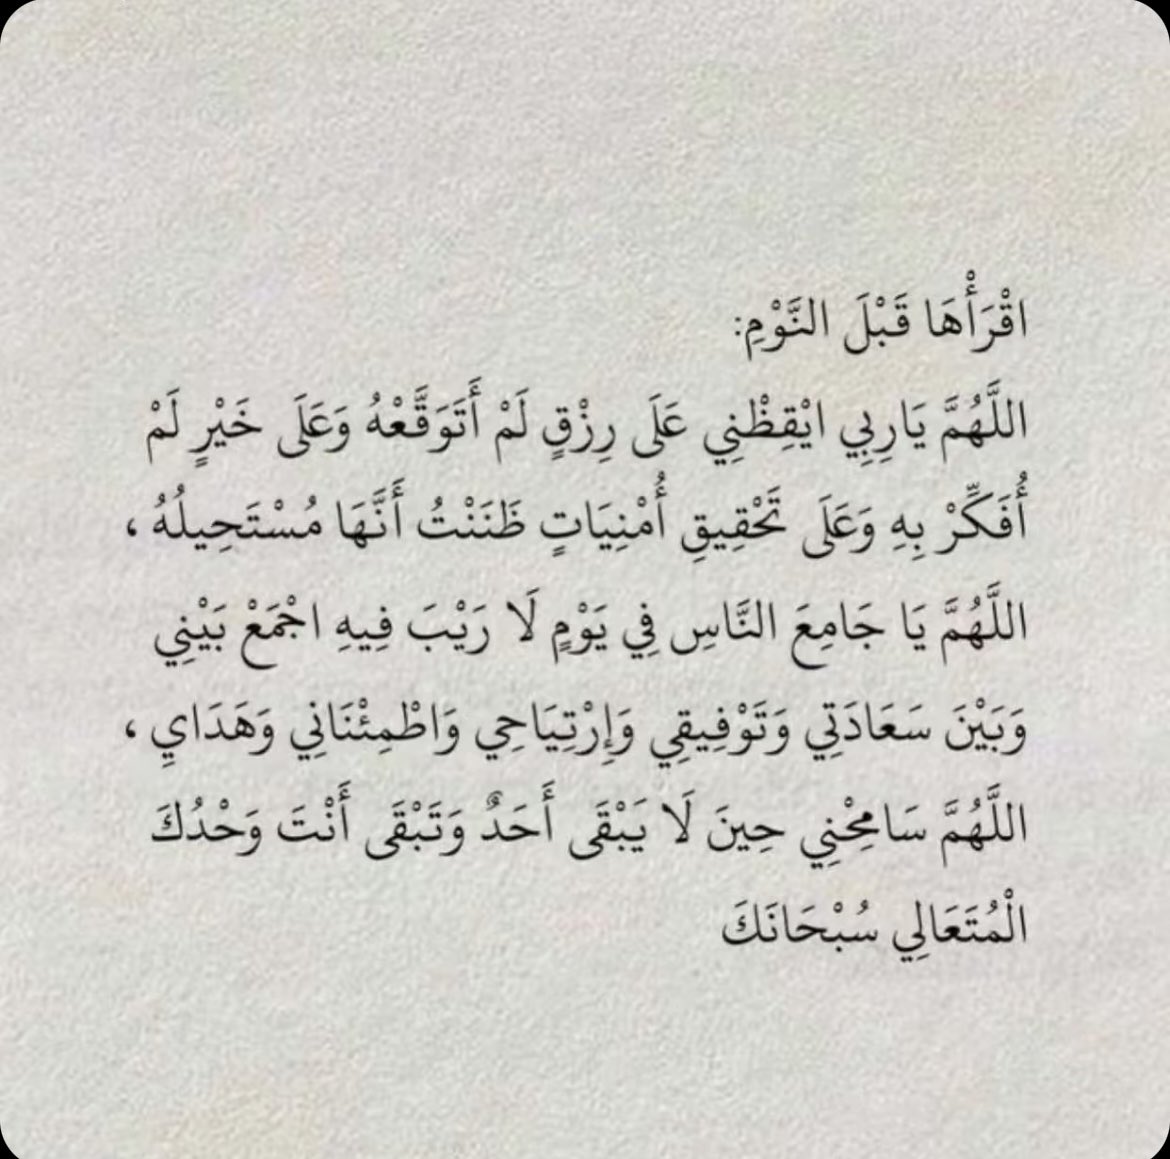 اقْرَأْهَا قَبْلَ النَّوْمِ:
اللَّهُمَّ يَارِبِي ايْقِظْنِي عَلَى رِزْقٍ لَمْ أَتَوَقَّعْهُ وَعَلَى خَيْرٍ لَمْ
أُفَكِّرْ بِهِ وَعَلَى تَحْقِيقِ أُمْنِيَاتٍ ظَنَنْتُ أَنَّهَا مُسْتَحِيلُهُ ،
اللَّهُمَّ يَا جَامِعَ النَّاسِ فِي يَوْمٍ لَا رَيْبَ فِيهِ اجْمَعْ بَيْنِي
وَبَيْنَ سَعَادَتِي وَتَوْفِيقِي وَإِرْتِيَاحِي وَاطْمِئْنَانِي وَهَدَايِ ،
اللَّهُمَّ سَامِحْنِي حِينَ لَا يَبْقَى أَحَدٌ وَتَبْقَى أَنْتَ وَحْدُكَ
الْمُتَعَالِي سُبْحَانَكَ